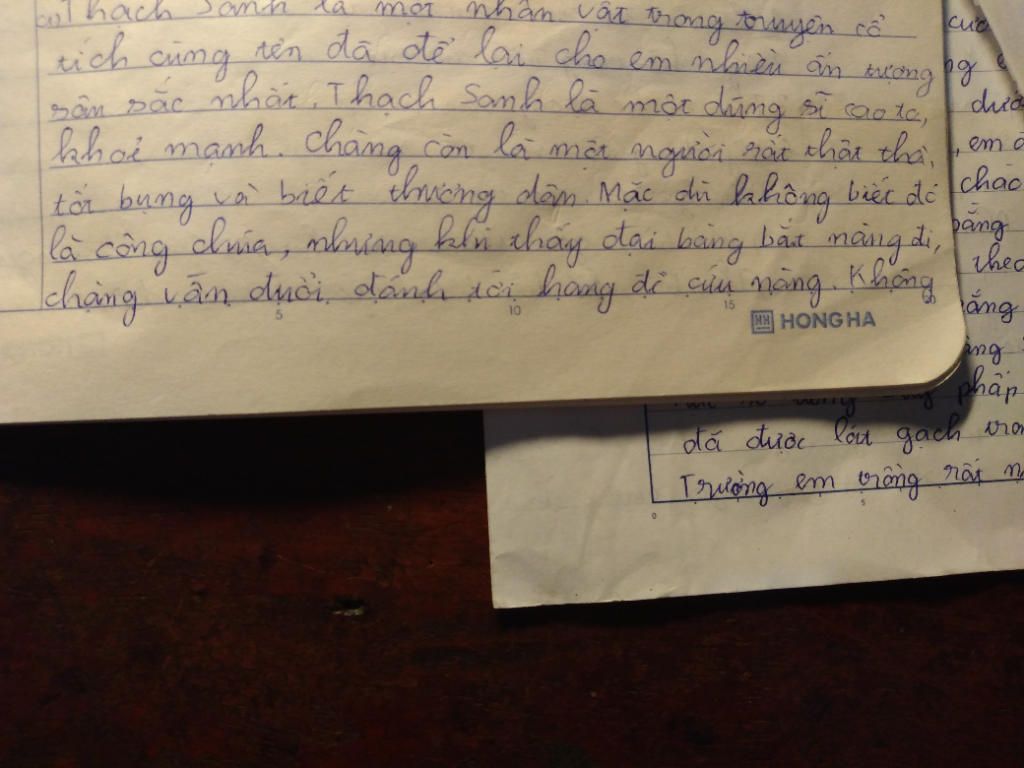 Thạch Sanh là một nhân vật trong truyện cổ
tích cùng tên đã để lại cho em nhiều ấn tượng
sâu sắc nhất. Thạch Sanh là một dũng sĩ cao to,
khoẻ mạnh. Chàng còn là một người rất thật thà,
tốt bụng và biết thương dân. Mặc dù không biết đó
là công chúa, nhưng khi thấy đại bàng bắt nàng đi,
chàng vẫn đuổi đánh tới hang để cứu nàng. Không
5 10 15
HH HONG HA
dướ
, em
chào
bằng
theo
pháp
đã được lát gạch tron
Trường em trồng rất n
0 5